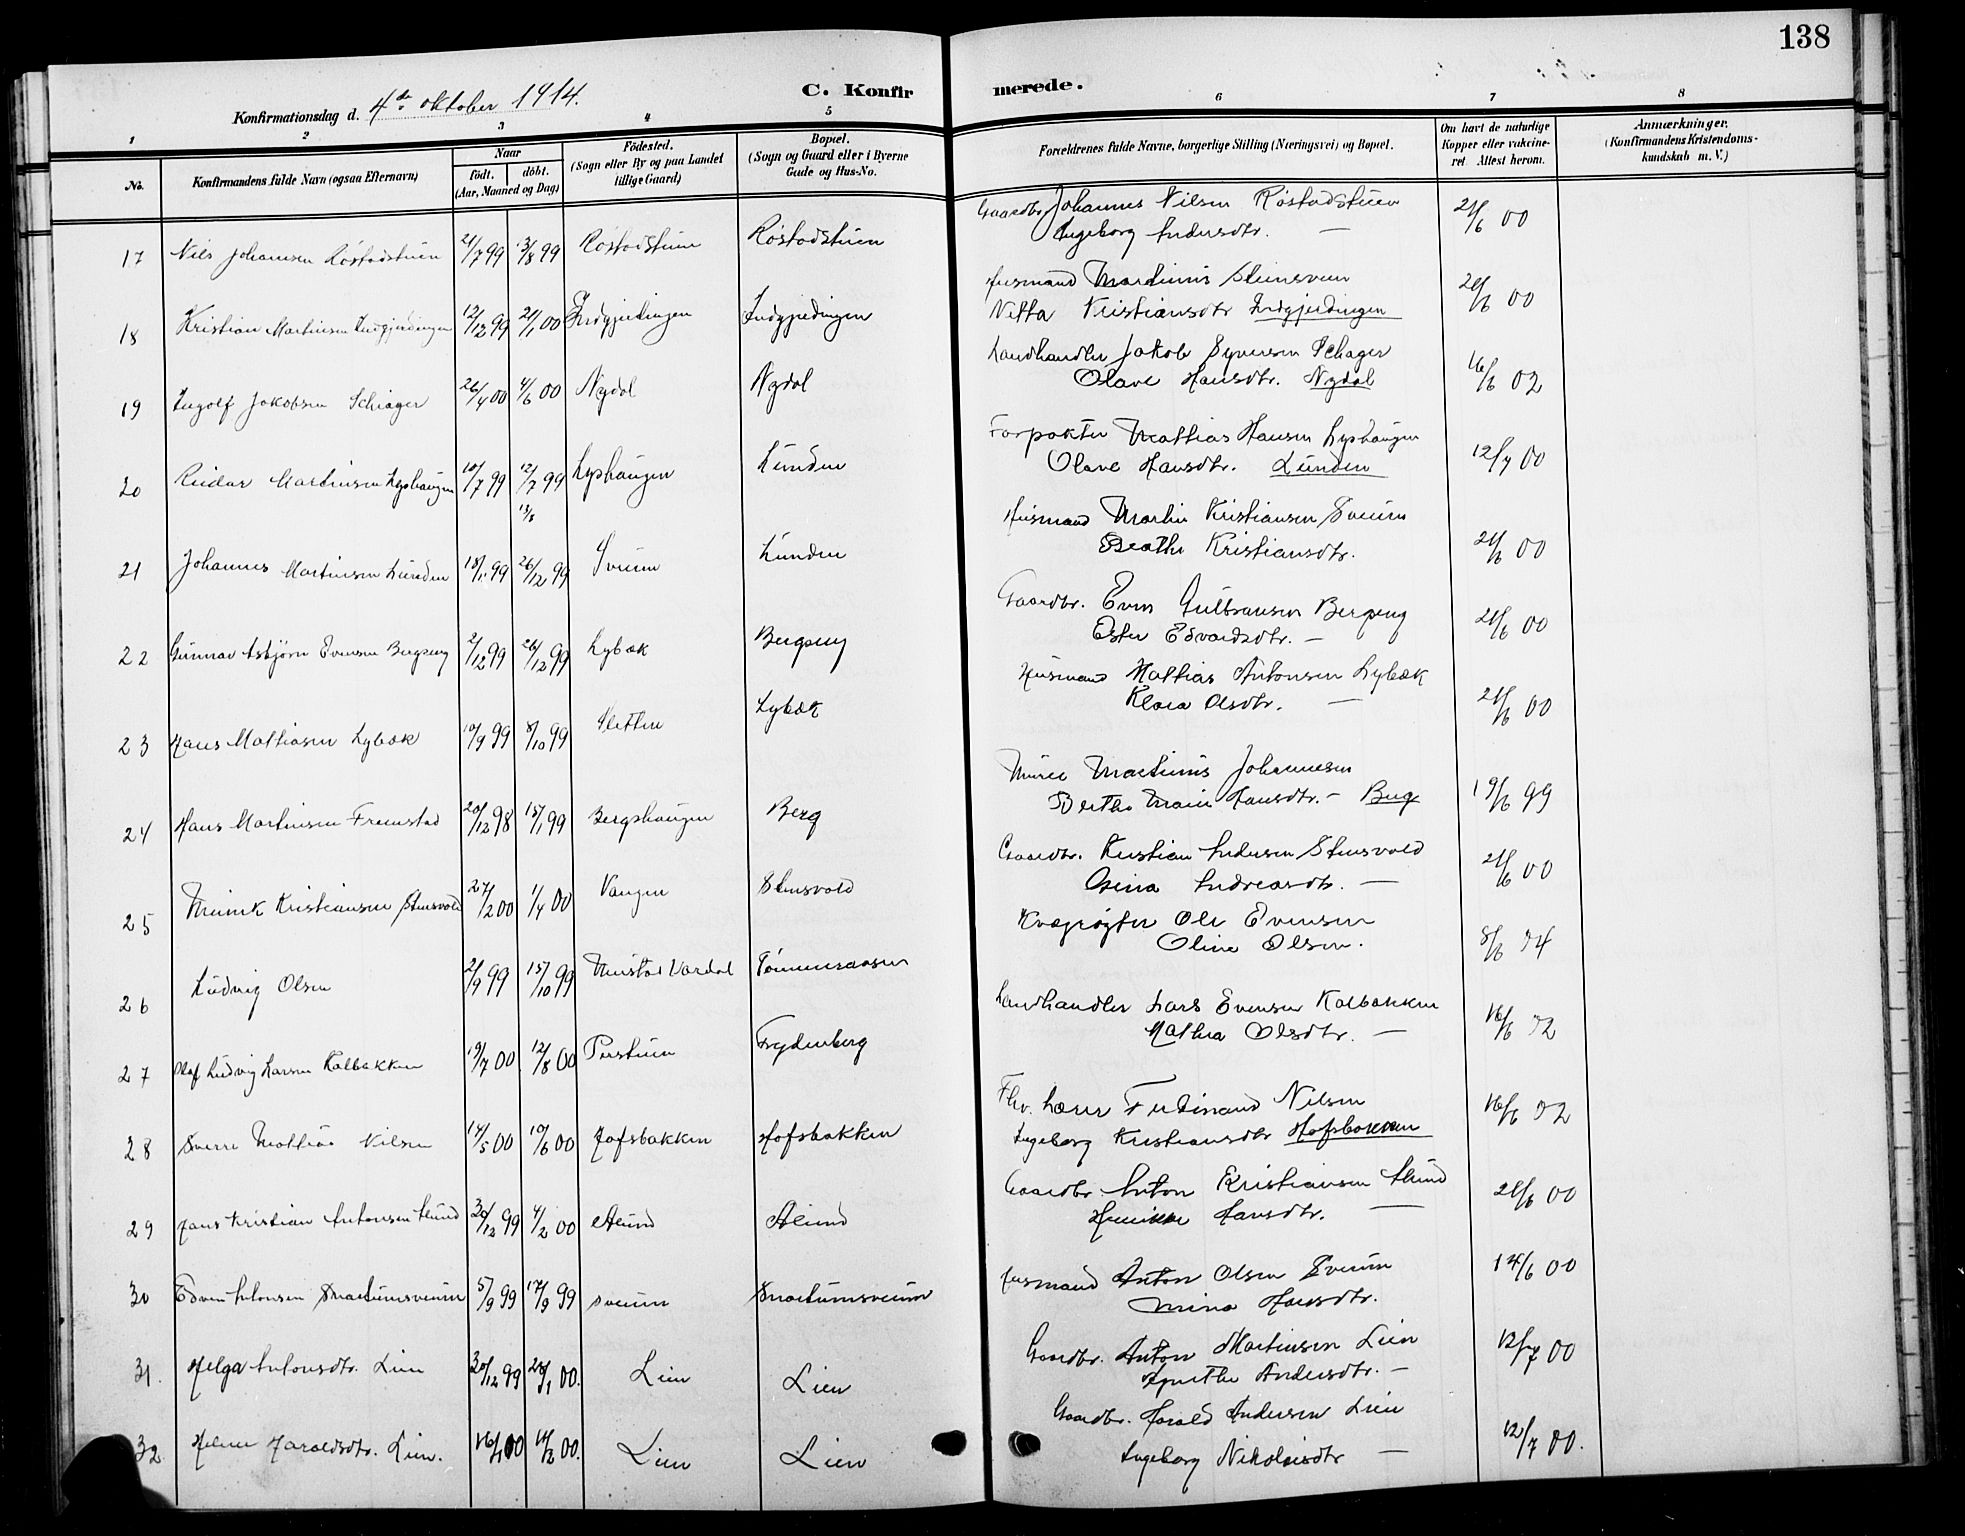 138
Konfirmationsdag d. 4de oktober 1914.
C. Konfirmerede.
1 2 3 4 5 6 7 8
No.
Konfirmandens fulde Navn (ogsaa Efternavn)
Naar
födt. döbt.
(Aar, Maaned og Dag)
Födested.
(Sogn eller By og paa Landet
tillige Gaard)
Bopæl.
(Sogn og Gaard eller i Byerne
Gade og Hus-No.
Forældrenes fulde Navne, borgerlige Stilling (Næringsvei) og Bopæl.
Om havt de naturlige
Kopper eller vakcine-
ret. Attest herom.
Anmærkninger.
(Konfirmandens Kristendoms-
kundskab m. V.)
Gaardbr. Johannes Nilsen Röstadstuen
17 Nils Johansen Röstadstuen 21/7 99 13/8 99 Röstadstuen Röstadstuen Ingeborg Andersdtr. — 21/6 00
Husmand Martinius Stensveen
18 Kristian Martinsen Indgjerdingen 12/12 99 21/1 00 Indgjerdingen Indgjerdingen Netta Kristiansdtr Indgjerdingen 21/6 00
Landhandler Jakob Syversen Schager
19 Ingolf Jakobsen Schiager 26/4 00 4/6 00 Nydal Nydal Olave Hansdtr. Nydal 16/6 02
Forpakter Mathias Hansen Lyshaugen
20 Reidar Martinsen Lyshaugen 10/7 99 12/7 99 Lyshaugen Lunden Olave Hansdtr. Lunden 12/7 00
13/8
Husmand Martin Kristiansen Sveum
21 Johannes Martinsen Lunden 18/11 99 26/12 99 Sveum Lunden Beathe Kristiansdtr. 21/6 00
Gaardbr. Even Gulbransen Bergseng
22 Gunnar Asbjörn Evensen Bergseng 2/12 99 26/12 99 Lybæk Bergseng Ester Edvardsdtr. — 21/6 00
Husmand Mathias Antonsen Lybæk
23 Hans Mathiasen Lybæk 10/9 99 8/10 99 Sletten Lybæk Klara Olsdtr. — 21/6 00
Murer Martinus Johannesen
24 Hans Martinsen Fremstad 20/12 98 15/1 99 Bergshaugen Berg Berthe Marie Hansdtr. — Berg 19/6 99
Gaardbr. Kristian Andersen Stensvold
25 Meinik Kristiansen Stensvold 27/2 00 1/4 00 Vangen Stensvold Gina Andreasdtr. — 21/6 00
Kvægrögter Ole Evensen
26 Ludvig Olsen 2/9 99 15/10 99 Mustad Vardal Tömmeraasen Oline Olsen. 8/6
Landhandler Lars Evensen Kalbakken
27 Olaf Ludvig Larsen Kalbakken 19/7 00 12/8 00 Perstuen Frydenberg Mathea Olsdtr. — 16/6 02
Fhv. Lærer Ferdinand Nilsen
28 Sverre Mathias Nilsen 14/5 00 10/6 00 Hofsbakken Hofsbakken Ingeborg Kristiansdtr Hofsbakken 16/6 02
Gaardbr. Anton Kristiansen Alund
29 Hans Kristian Antonsen Alund 30/12 99 4/2 00 Alund Alund Henrikke Hansdtr. — 21/6 00
Husmand Anton Olsen Sveum
30 Edvin Antonsen Snartumsveum 5/9 99 17/9 99 Sveum Snartumsveum Mina Hansdtr. 14/6 00
Gaardbr. Anton Martinsen Lien
31. Helga Antonsdtr. Lien 30/12 99 28/1 00. Lien Lien Agnethe Andersdtr. — 12/7 00
Gaardbr. Harald Andersen Lien
32 Helene Haraldsdtr. Lien. 16/1 00 14/2 00. Lien Lien Ingeborg Nikolaisdtr — 12/7 00.